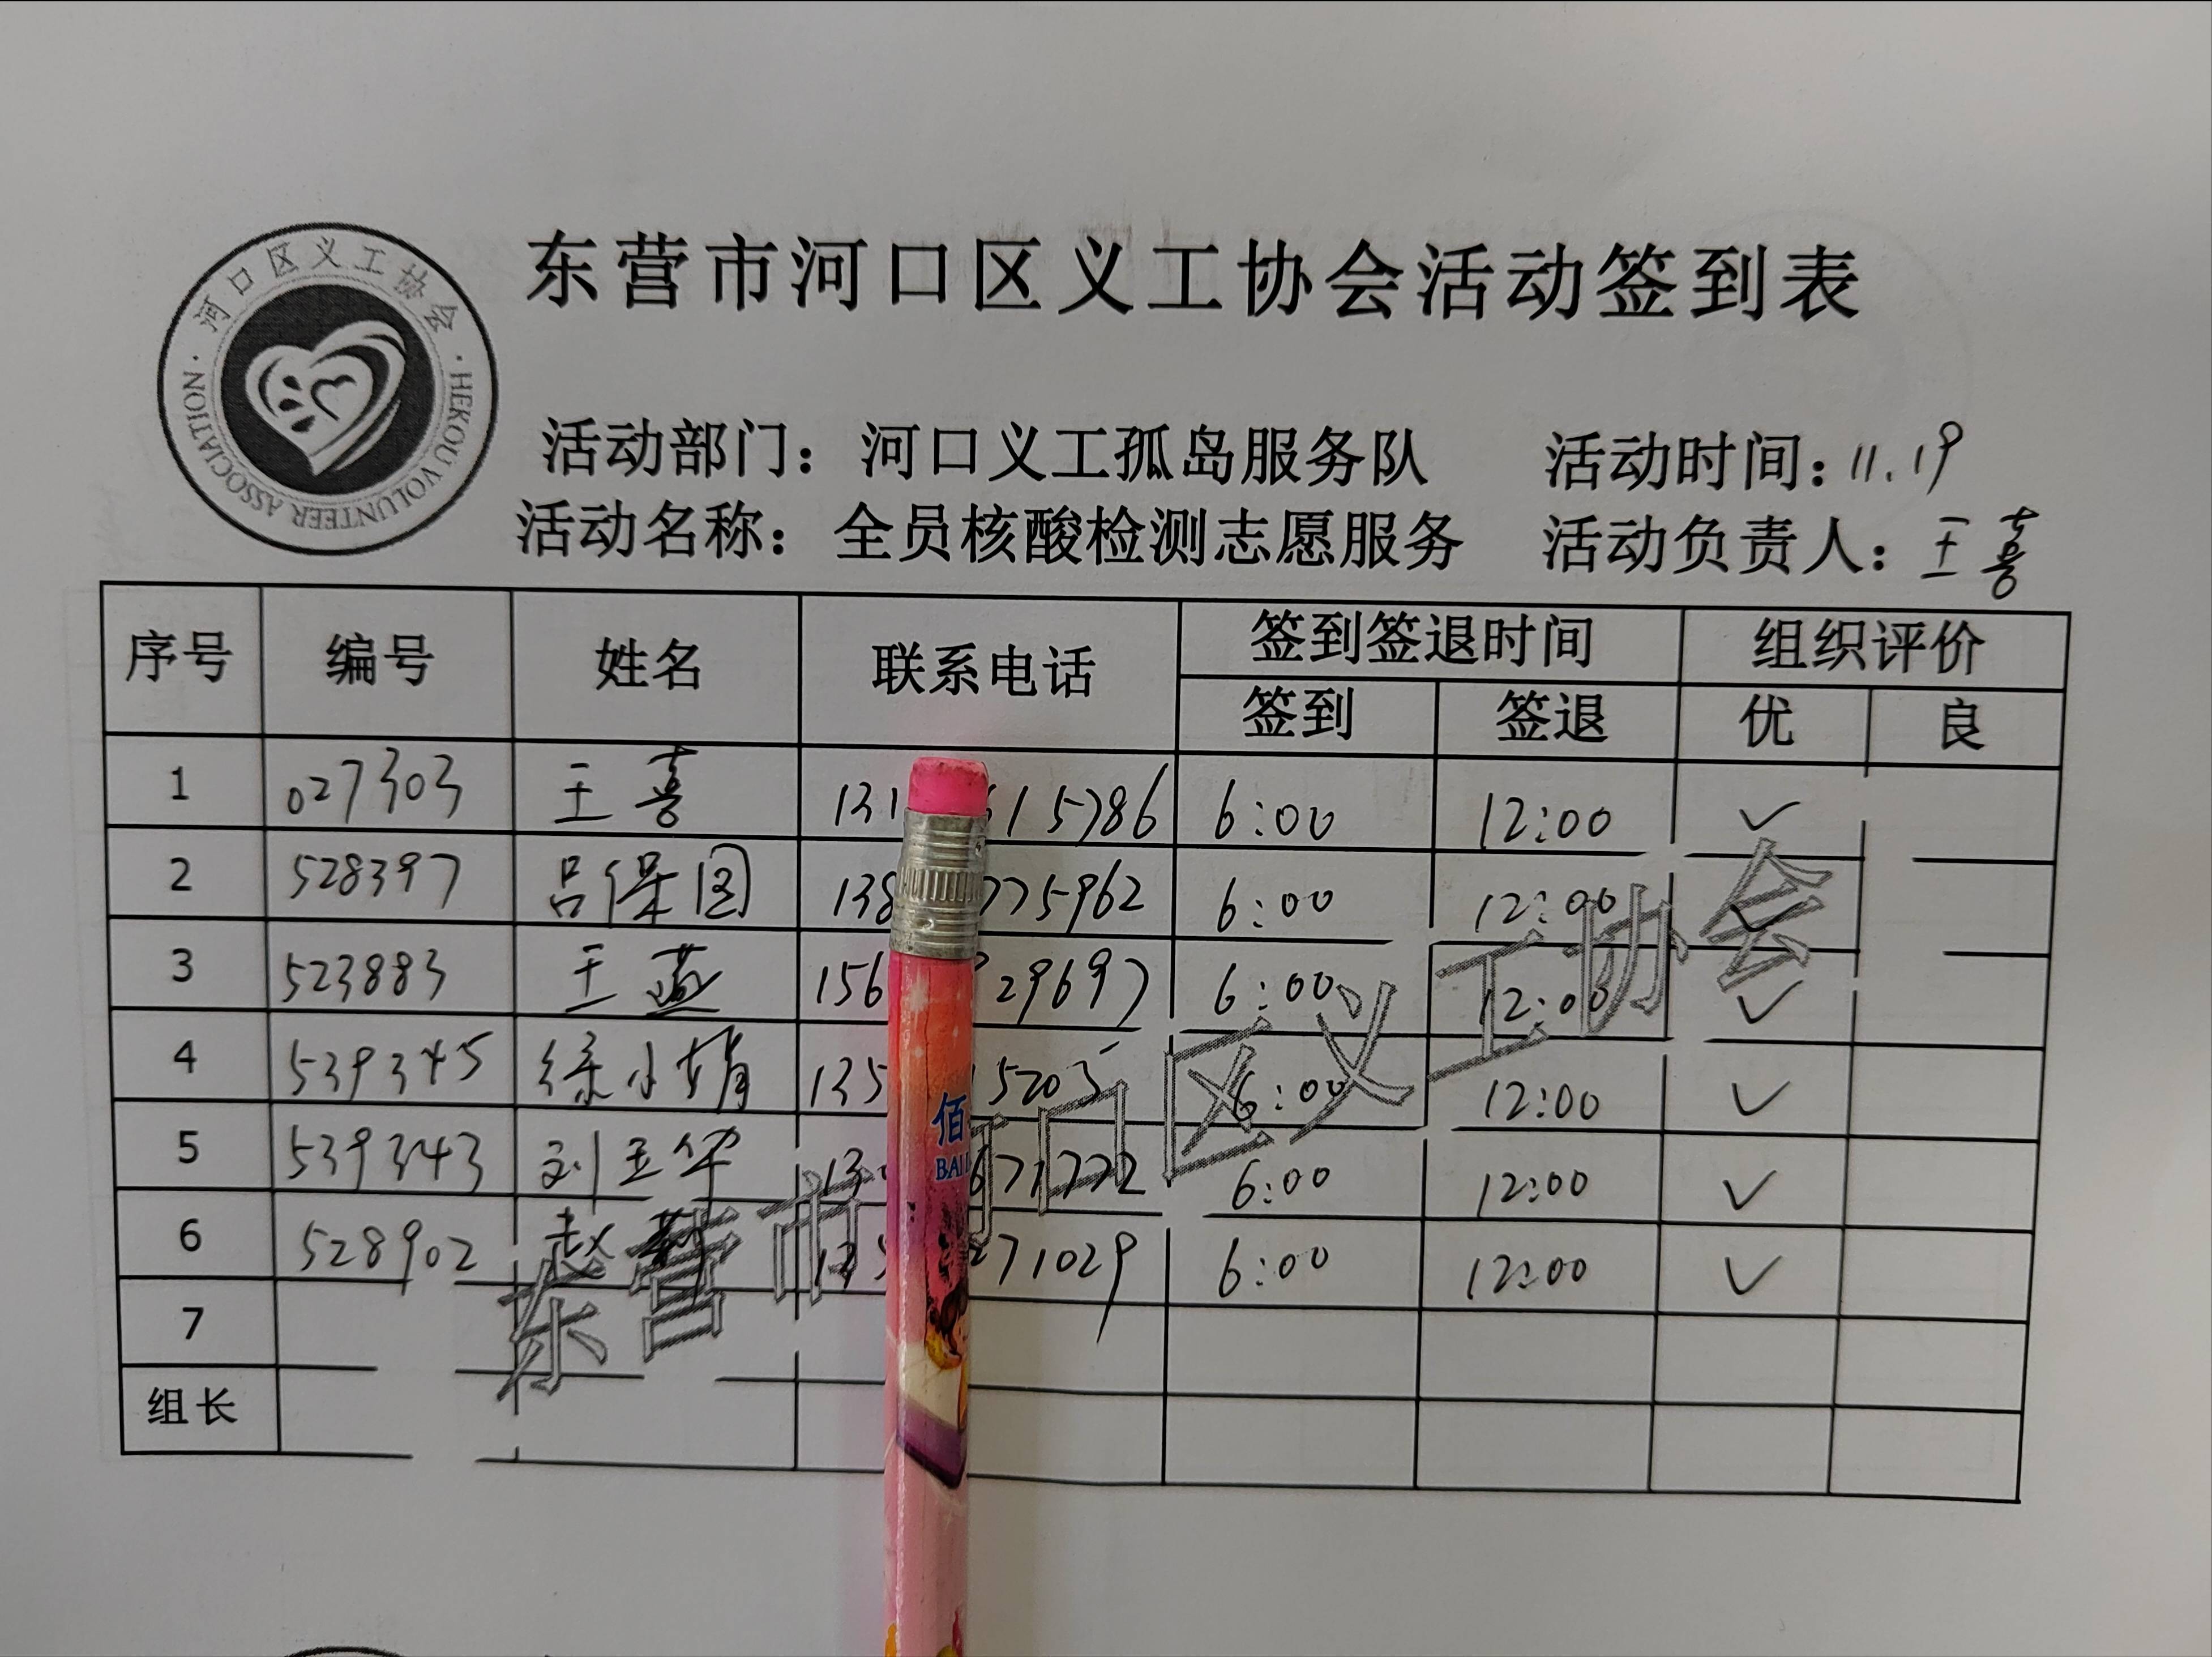 东营市河口区义工协会活动签到表
河口区义工协会
HEKOU VOLUNTEER ASSOCIATION
活动部门：河口义工孤岛服务队 活动时间：11.19
活动名称：全员核酸检测志愿服务 活动负责人：王喜
序号 编号 姓名 联系电话 签到签退时间 组织评价
签到 签退 优 良
1 027303 王喜 131 615786 6:00 12:00 ✓
2 528397 吕保国 138 775962 6:00 12:00 ✓
3 523883 王燕 156 29697 6:00 12:00 ✓
4 539345 徐小娟 135 15205 6:00 12:00 ✓
5 539343 刘玉华 13 671772 6:00 12:00 ✓
6 528902 赵莉 135 271029 6:00 12:00 ✓
7
组长
东营市河口区义工协会
佰
BAI